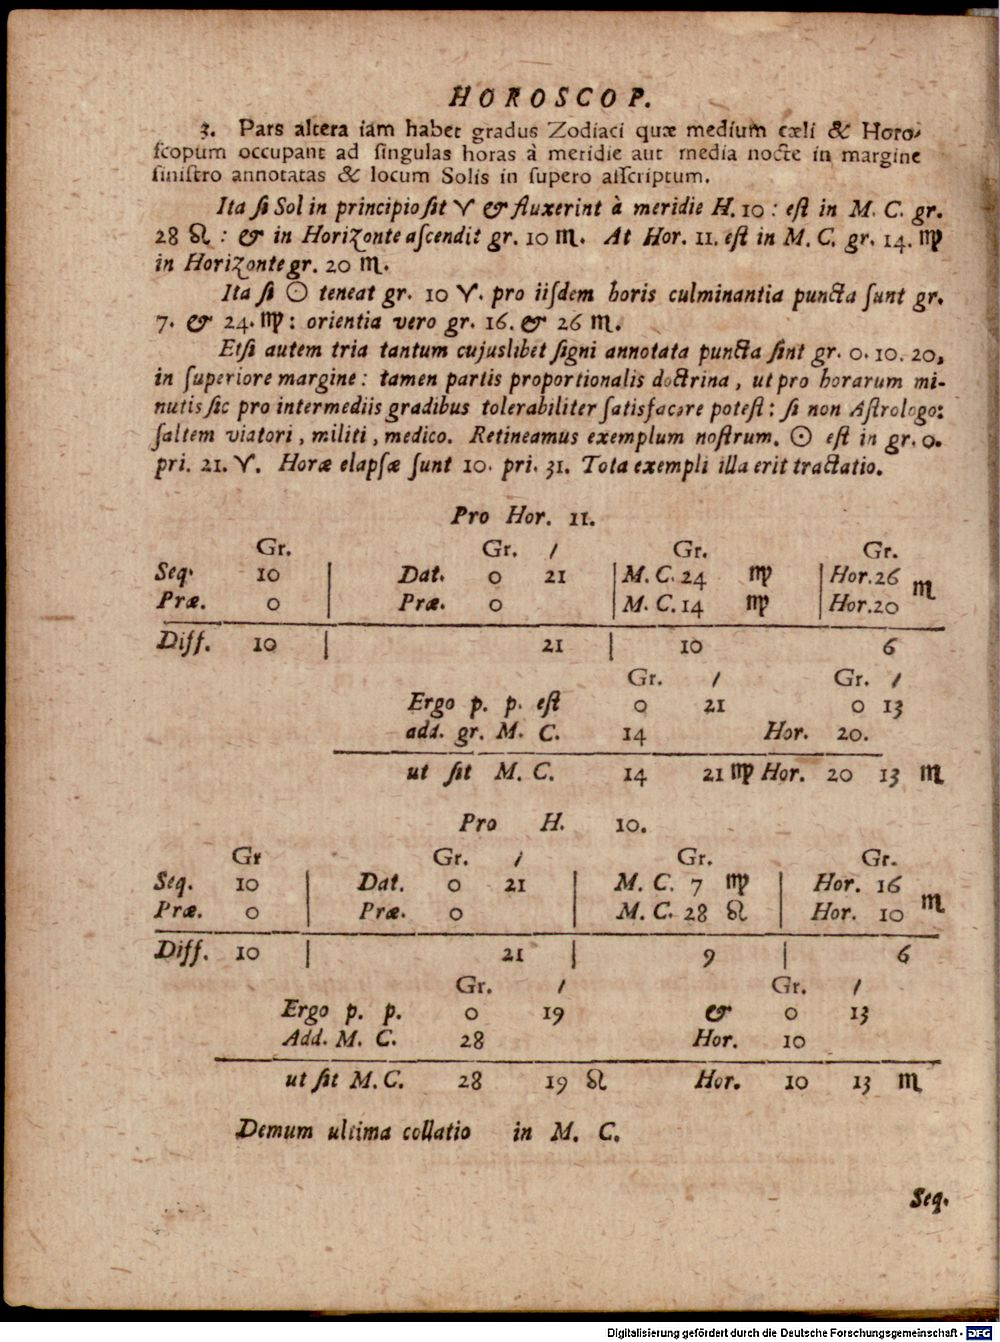 HOROSCOP.
3. Pars altera iam habet gradus Zodiaci quæ medium cæli & Horo-
ſcopum occupant ad ſingulas horas à meridie aut media nocte in margine
ſiniſtro annotatas & locum Solis in ſupero aſſcriptum.
Ita ſi Sol in principio ſit ♈ & fluxerint à meridie H. 10 : eſt in M. C. gr.
28 ♌ : & in Horizonte aſcendit gr. 10 ♏. At Hor. 11. eſt in M. C. gr. 14. ♍
in Horizonte gr. 20 ♏.
Ita ſi ☉ teneat gr. 10 ♈. pro iiſdem horis culminantia puncta ſunt gr.
7. & 24. ♍ : orientia vero gr. 16. & 26 ♏.
Etſi autem tria tantum cujuslibet ſigni annotata puncta ſint gr. 0. 10. 20,
in ſuperiore margine : tamen partis proportionalis doctrina, ut pro horarum mi-
nutis ſic pro intermediis gradibus tolerabiliter ſatisfacere poteſt : ſi non Aſtrologo:
ſaltem viatori, militi, medico. Retineamus exemplum noſtrum. ☉ eſt in gr. 0.
pri. 21. ♈. Horæ elapſæ ſunt 10. pri. 31. Tota exempli illa erit tractatio.
Pro Hor. 11.
Gr. Gr. / Gr. Gr.
Seq. 10 | Dat. 0 21 | M. C. 24 ♍ | Hor. 26 ♏
Præ. 0 | Præ. 0 | M. C. 14 ♍ | Hor. 20
Diff. 10 | 21 | 10 6
Gr. / Gr. /
Ergo p. p. eſt 0 21 0 13
add. gr. M. C. 14 Hor. 20.
ut ſit M. C. 14 21 ♍ Hor. 20 13 ♏
Pro H. 10.
Gr Gr. / Gr. Gr.
Seq. 10 | Dat. 0 21 | M. C. 7 ♍ | Hor. 16 ♏
Præ. 0 | Præ. 0 | M. C. 28 ♌ | Hor. 10
Diff. 10 | 21 | 9 | 6
Gr. / Gr. /
Ergo p. p. 0 19 & 0 13
Add. M. C. 28 Hor. 10
ut ſit M. C. 28 19 ♌ Hor. 10 13 ♏
Demum ultima collatio in M. C.
Seq.
Digitalisierung gefördert durch die Deutsche Forschungsgemeinschaft - DFG